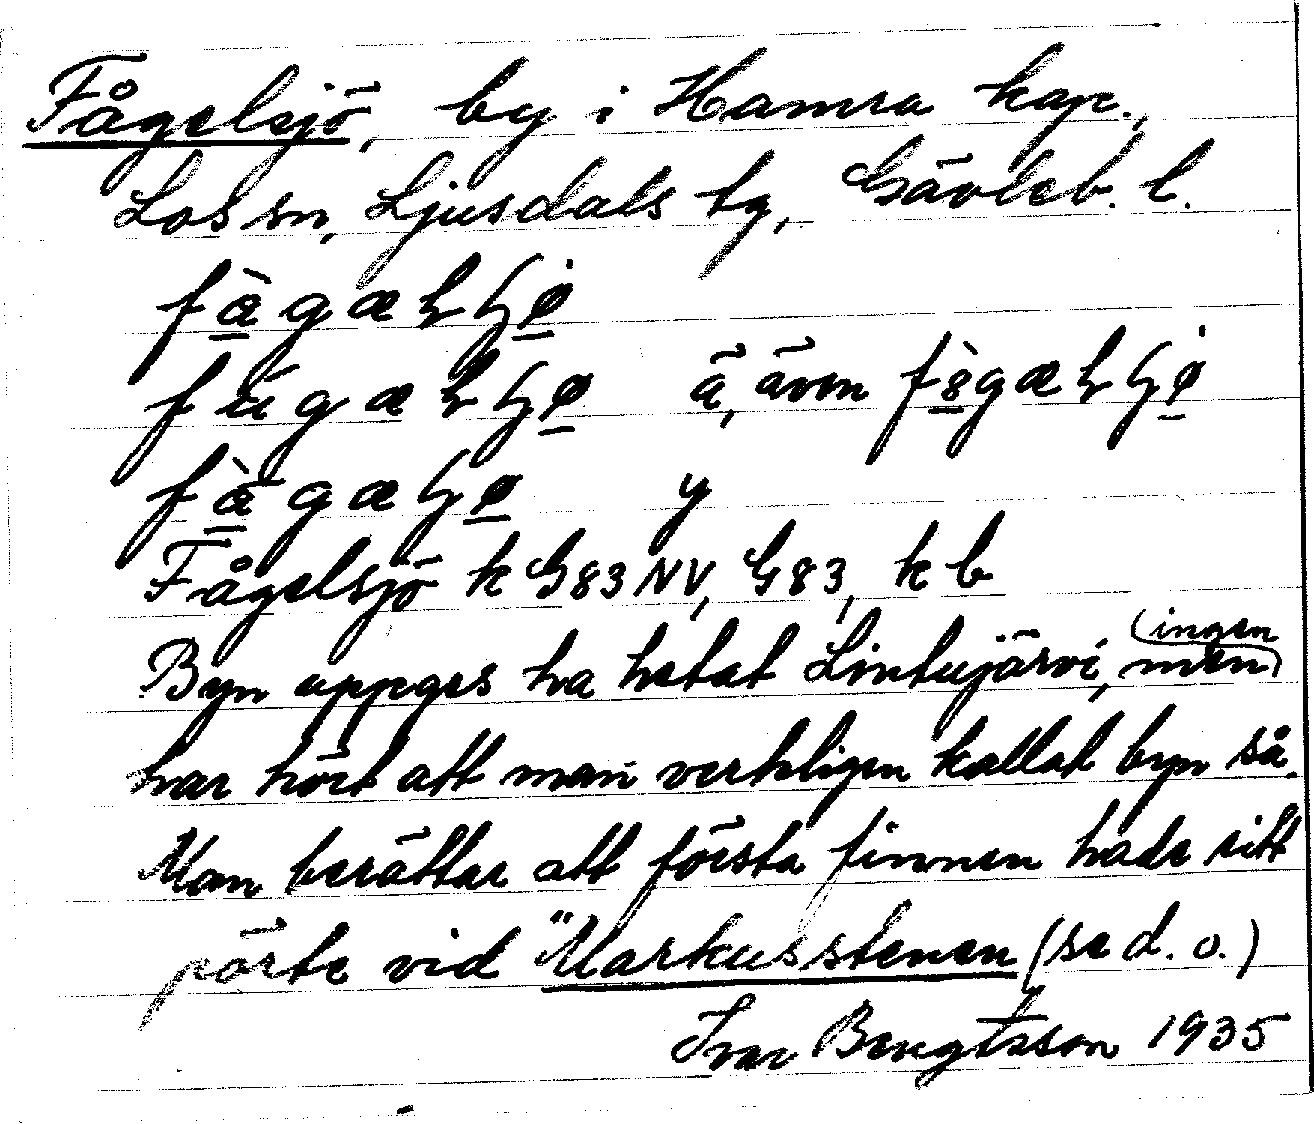 Fågelsjö, by i Hamra kap.,
Los sn, Ljusdals tg, Gävleb. l.
Fågelsjö k G83NV, G83, k b
Byn uppges ha hetat Lintujärvi, men ingen
har hört att man verkligen kallat byn så.
Man berättar att första finnen hade sitt
pörte vid "Markusstenen (se d. o.)
Ivar Bengtsson 1935